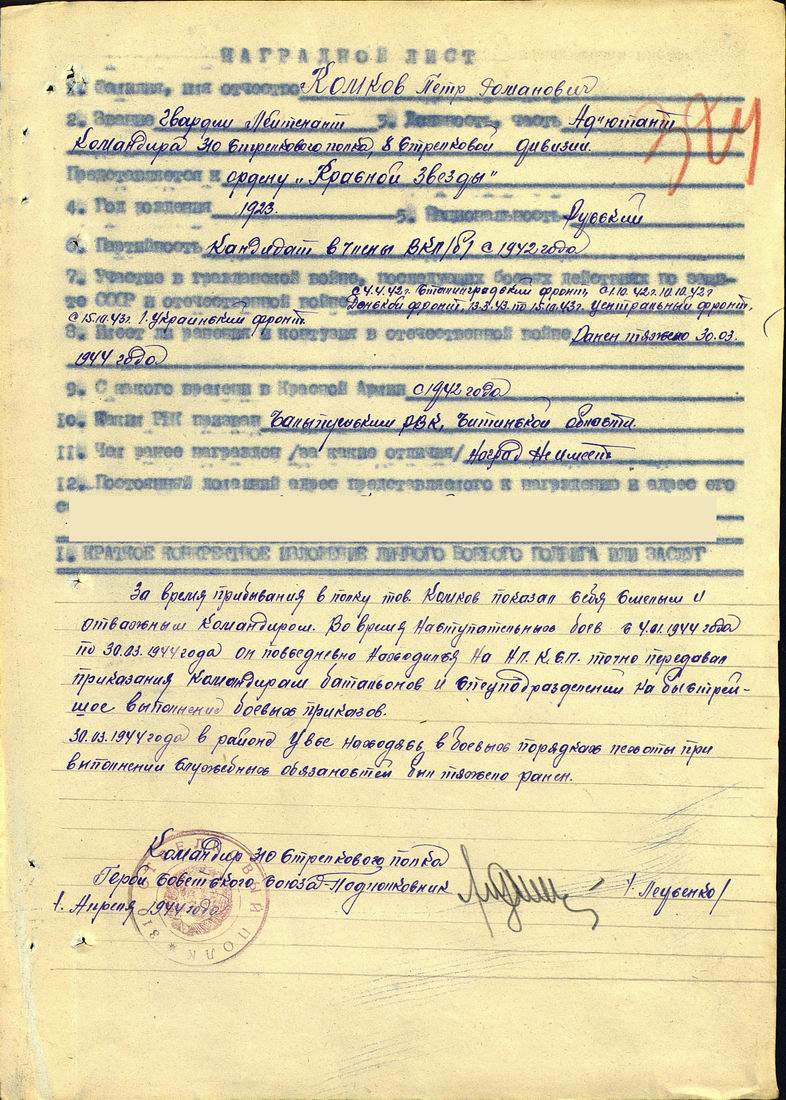 НАГРАДНОЙ ЛИСТ
1. Фамилия, имя отчество Комков Петр Романович
2. Звание Гвардии Лейтенант 3. Должность, часть Адъютант
Командира 310 Стрелкового полка, 8 Стрелковой дивизии.
Представляется к ордену „Красной Звезды"
4. Год рождения 1923. 5. Национальность Русский
6. Партийность Кандидат в члены ВКП/б/ с 1942 года
7. Участие в гражданской войне, последующих боевых действиях по защи-
те СССР и отечественной войне с 4.4.42г. Сталинградский фронт, с 1.10.42г. 10.10.43г
Донской фронт, 13.3.43. по 15.10.43г. Центральный фронт,
с 15.10.43г. 1. Украинский фронт.
8. Имеет ли ранения и контузии в отечественной войне Ранен тяжело 30.03.
1944 года
9. С какого времени в Красной Армии с 1942 года
10. Каким РВК призван РВК, Читинской области.
11. Чем ранее награжден /за какие отличия/ Наград Не имеет
12. Постоянный домашний адрес представляемого к награждению и адрес его
1. КРАТКОЕ КОНКРЕТНОЕ ИЗЛОЖЕНИЕ ЛИЧНОГО БОЕВОГО ПОДВИГА ИЛИ ЗАСЛУГ
За время прибывания в полку тов. Комков показал себя смелым и
отважным командиром. Во время наступательных боев с 4.01.1944 года
по 30.03.1944 года он повседневно находился на НП. К.С.П. точно передавал
приказания Командирам батальонов и спецподразделений на быстрей-
шое выполнений боевых приказов.
30.03.1944 года в район Увсе находясь в боевых порядках пехоты при
выполнении служебных обязаностей был тяжело ранен.
Командир 310 Стрелкового полка
Герой Советского Союза-Подполковник /Леусенко/
1. Апреля 1944 года
СТРЕЛКОВЫЙ ПОЛК * 310
384